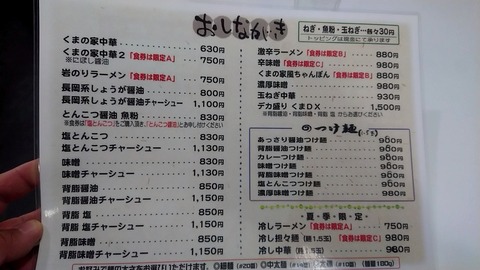 おしながき
くまの家中華 630円
くまの家中華2「食券は限定A」 750円
※にぼし醤油
岩のりラーメン「食券は限定A」 750円
長岡系しょうが醤油 800円
長岡系しょうが醤油チャーシュー 1,100円
とんこつ醤油 魚粉 830円
塩とんこつ 830円
塩とんこつチャーシュー 1,130円
味噌 830円
味噌チャーシュー 1,130円
背脂醤油 850円
背脂醤油チャーシュー 1,150円
背脂 塩 850円
背脂 塩チャーシュー 1,150円
背脂味噌 850円
背脂味噌チャーシュー 1,150円
ねぎ・魚粉・玉ねぎ…各々30円
トッピングは現金にて承ります
激辛ラーメン「食券は限定B」 880円
辛味噌「食券は限定C」 980円
くまの家風ちゃんぽん「食券は限定B」 880円
濃厚味噌 980円
玉ねぎ中華 930円
デカ盛り くまDX 1,500円
のつけ麺
あっさり醤油つけ麺 960円
背脂醤油つけ麺 960円
カレーつけ麺 960円
味噌つけ麺 960円
背脂味噌つけ麺 960円
塩とんこつつけ麺 960円
濃厚味噌つけ麺 980円
夏・季・限・定
冷しラーメン「食券は限定A」 750円
冷し担々麺(麺1.5玉)「食券は限定C」 980円
冷し中華(麺1.5玉) 960円